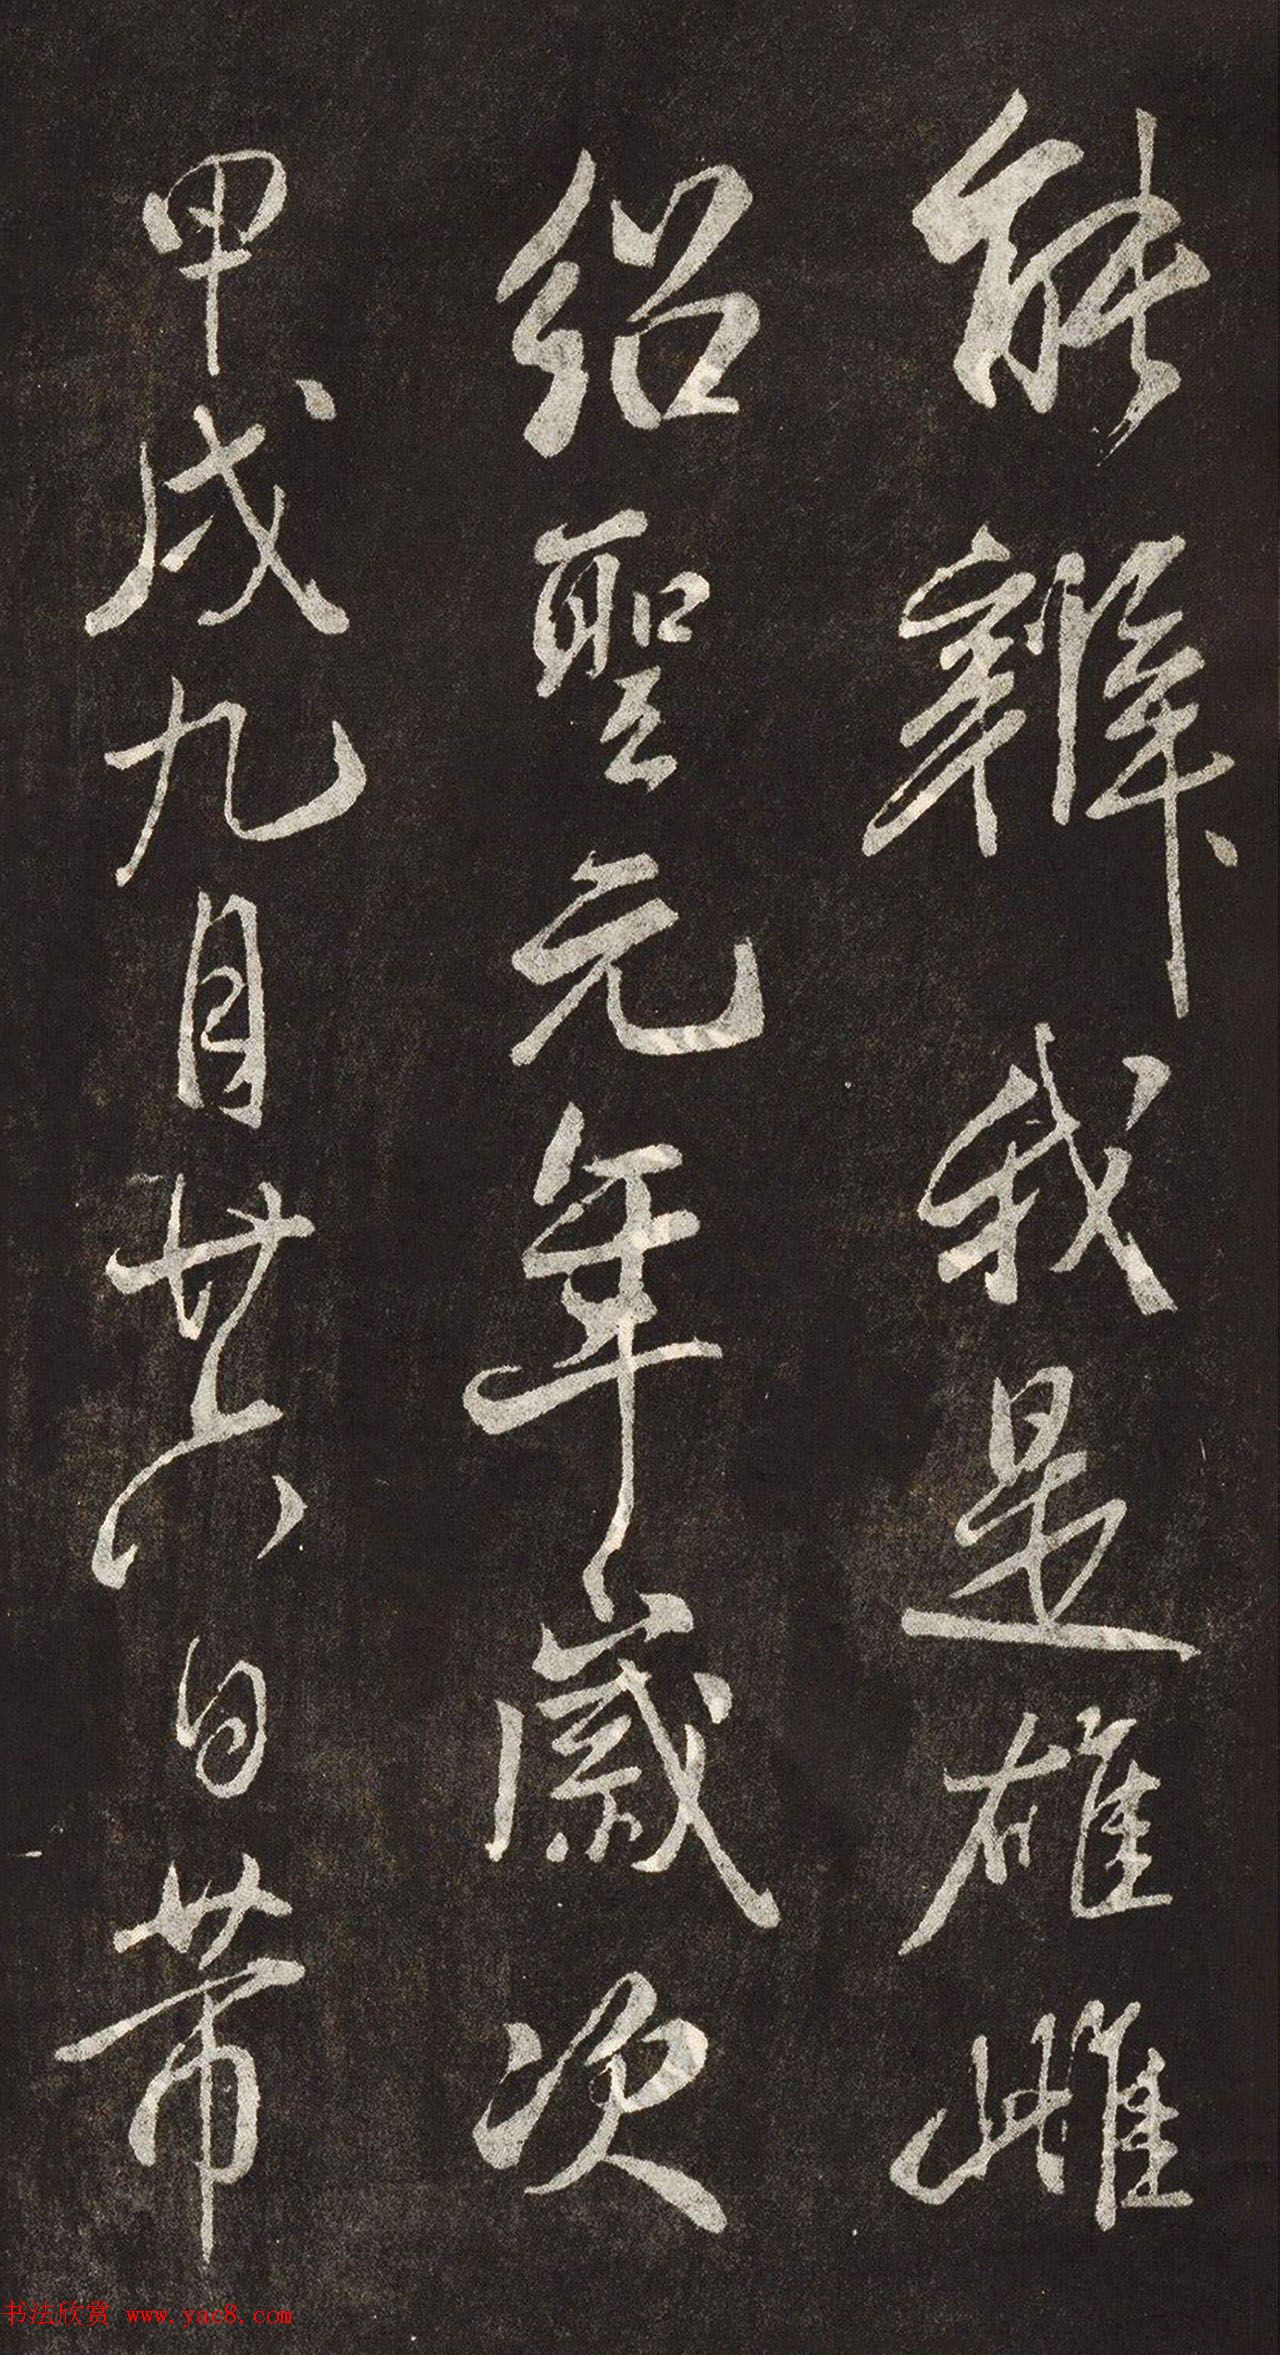 能辨我是雄雌
绍聖元年歲次
甲戌九月廿六日带
书法欣赏 www.yac8.com